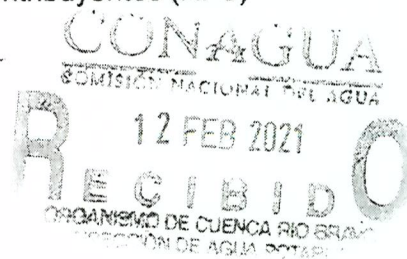 CONAGUA
COMISIÓN NACIONAL DEL AGUA
12 FEB 2021
RECIBIDO
ORGANISMO DE CUENCA RIO BRAVO
DE AGUA POTABLE